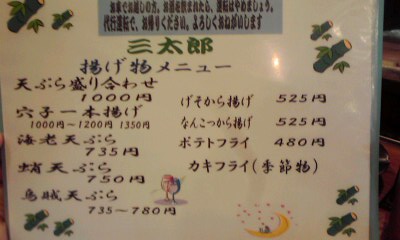 お車でお越しの方、お酒を飲まれたら、運転はやめましょう。
代行運転で、お帰りください。よろしくおねがいします
三太郎
揚げ物メニュー
天ぷら盛り合わせ
1000円
穴子一本揚げ
1000円〜1200円 1350円
海老天ぷら
735円
蛸天ぷら
750円
烏賊天ぷら
735〜780円
げそから揚げ 525円
なんこつから揚げ 525円
ポテトフライ 480円
カキフライ(季節物)